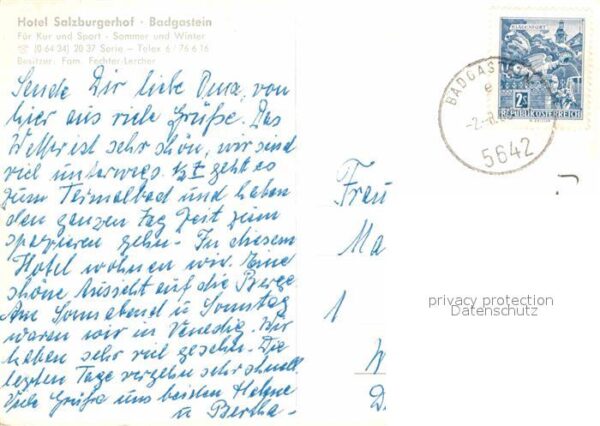 Hotel Salzburgerhof · Badgastein
Für Kur und Sport - Sommer und Winter
☎ (0 64 34) 20 37 Serie - Telex 6 / 76 6 16
Besitzer: Fam. Fechter-Lercher
Sende Dir liebe Oma, von
hier aus viele Grüße. Das
Wetter ist sehr schön, wir sind
viel unterwegs. ½ 7 geht es
zum Termalbad und haben
den ganzen Tag Zeit zum
spazieren gehn. In diesem
Hotel wohnen wir. Eine
schöne Aussicht auf die Berge.
Am Sonnabend u Sonntag
waren wir in Venedig. Wir
haben sehr viel gesehn. Die
letzten Tage vergehn sehr schnell.
Viele Grüße uns beiden
u Bertha-
REPUBLIK ÖSTERREICH
2 S
BADGASTEIN
e
-2.-8.
5642
Frau
Ma
1
W
D.
privacy protection
Datenschutz